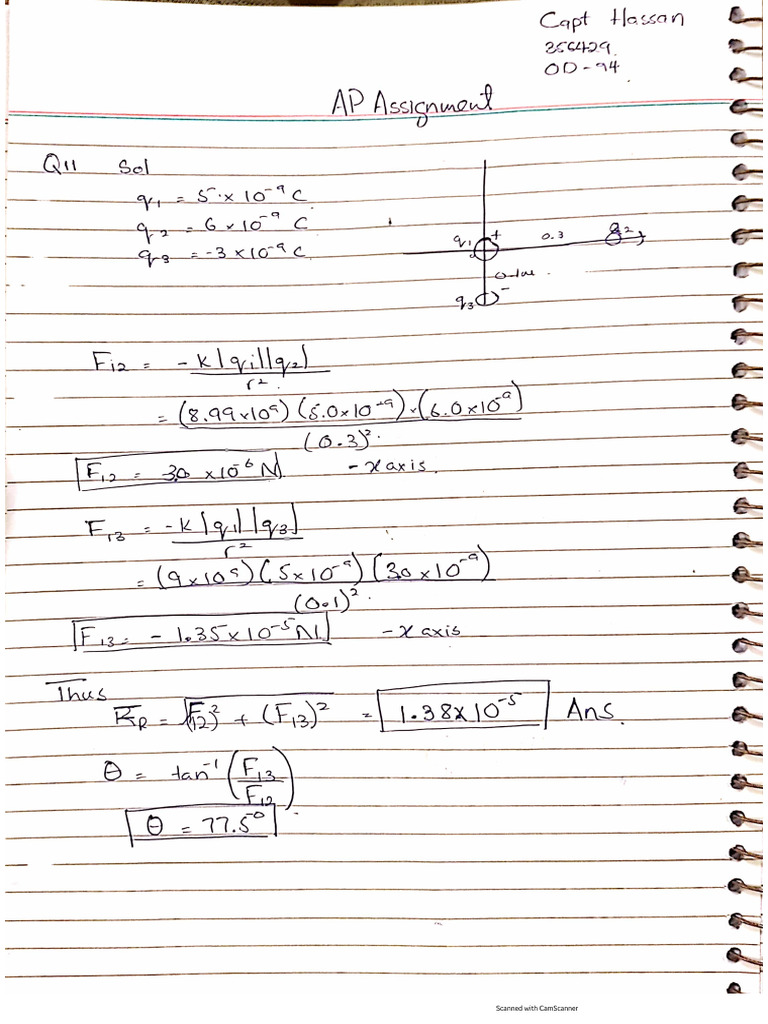 Capt Hassan
256429
OD-94
AP Assignment
Q11 Sol
q₁ = 5.×10⁻⁹ C
q₂ = 6×10⁻⁹ C
q₃ = -3×10⁻⁹ C
q₁ + 0.3 q₂
q₃ -
F₁₂ = -K|q₁||q₂| / r²
= (8.99×10⁹)(5.0×10⁻⁹).(6.0×10⁻⁹) / (0.3)²
F₁₂ = 3.0 ×10⁻⁶ N - x axis.
F₁₃ = -K|q₁||q₃| / r²
= (9×10⁹)(5×10⁻⁹)(3.0×10⁻⁹) / (0.1)²
F₁₃ = -1.35×10⁻⁵ N - x axis
Thus
F_R = √(F₁₂)² + (F₁₃)² = 1.38×10⁻⁵ Ans.
θ = tan⁻¹ (F₁₃ / F₁₂)
θ = 77.5°
Scanned with CamScanner